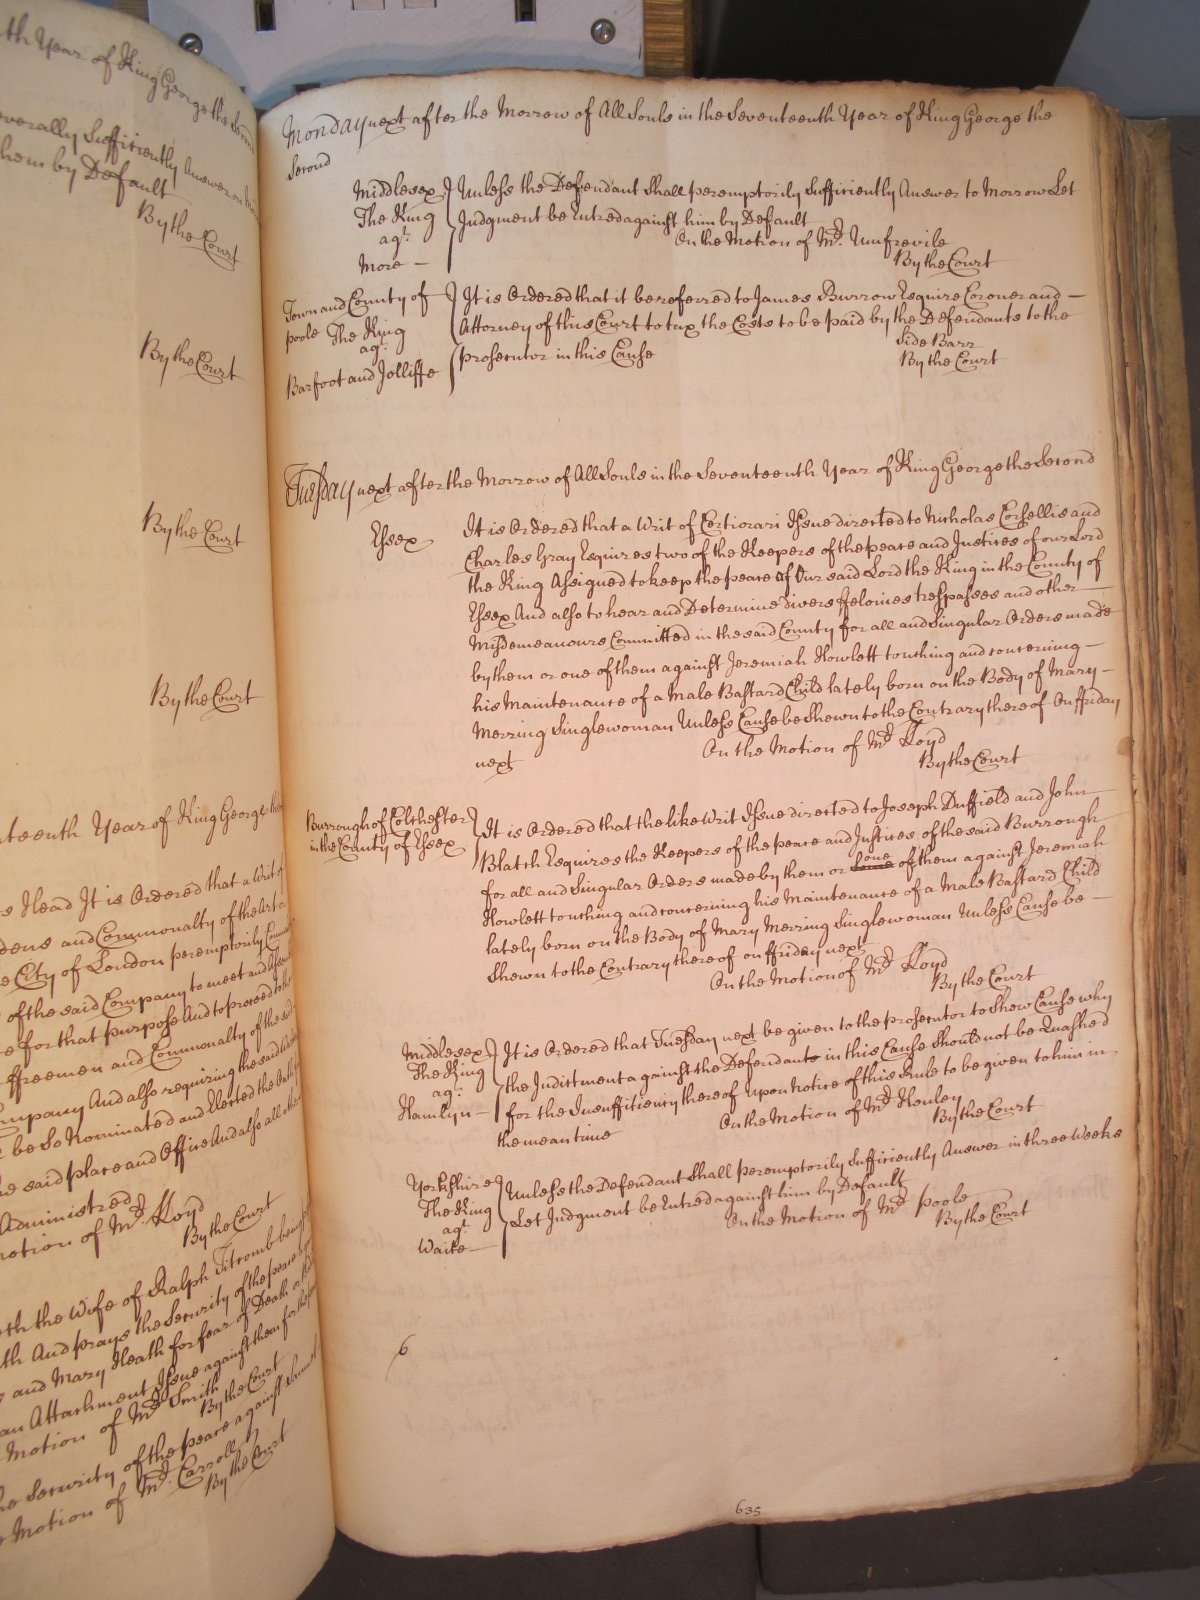 th Year of King George the Second
everally Sufficiently Answer on
hem by Default
By the Court
By the Court
By the Court
By the Court
nteenth Year of King George the
s Head It is Ordered that a Writ of
dens and Commonalty of the Art or
e City of London peremptorily
of the said Company to meet and
e for that purpose And to proceed to the
ffreemen and Commonalty of the said
ompany And also requiring the said
be So Nominated and Elected the Oath
he said place and Office And also all
Administred
otion of Mr. Lloyd
By the Court
eth the Wife of Ralph Titcomb being
th And prays the Security of the peace
and Mary Heath for fear of Death or
an Attachment Issue against them for the
Motion of Mr Smith
By the Court
he Security of the peace against Samuel
Motion of Mr. Carroll
By the Court
Monday next after the Morrow of All Souls in the Seventeenth Year of King George the
Second
Middlesex Unless the Defendant Shall peremptorily Sufficiently Answer to Morrow Let
The King Judgment be Entred against him by Default
agt. On the Motion of Mr. Umfrevile
More — By the Court
Town and County of It is Ordered that it be referred to James Burrow Esquire Coroner and —
poole The King Attorney of this Court to tax the Costs to be paid by the Defendants to the
agt. prosecutor in this Cause Side Barr
Barfoot and Jolliffe By the Court
Tuesday next after the Morrow of All Souls in the Seventeenth Year of King George the Second
Essex It is Ordered that a Writ of Certiorari Issue directed to Nicholas Corsellis and
Charles Gray Esquires two of the Keepers of the peace and Justices of our Lord
the King Assigned to keep the peace of Our said Lord the King in the County of
Essex And also to hear and Determine divers ffelonies trespasses and other
Misdemeanours Committed in the said County for all and Singular Orders made
by them or one of them against Jeremiah Howlett touching and concerning —
his Maintenance of a Male Bastard Child lately born on the Body of Mary —
Merring Singlewoman Unless Cause be Shewn to the Contrary thereof On ffriday
next On the Motion of Mr Lloyd
By the Court
Burrough of Colchester It is Ordered that the like Writ Issue directed to Joseph Duffield and John
in the County of Essex Blatch Esquires the Keepers of the peace and Justices of the said Burrough
for all and Singular Orders made by them or one of them against Jeremiah
Howlett touching and concerning his Maintenance of a Male Bastard Child
lately born on the Body of Mary Merring Singlewoman Unless Cause be —
Shewn to the Contrary thereof on ffriday next
On the Motion of Mr Lloyd
By the Court
Middlesex It is Ordered that Tuesday next be given to the prosecutor to Shew Cause why
The King the Indictment against the Defendants in this Cause Should not be Quashed
agt. for the Insufficiency thereof upon notice of this Rule to be given to him in
Hamlyn — the mean time On the Motion of Mr Henley
By the Court
Yorkshire Unless the Defendant Shall peremptorily Sufficiently Answer in three Weeks
The King Let Judgment be Entred against him by Default
agt. On the Motion of Mr poole
Waite — By the Court
6
635